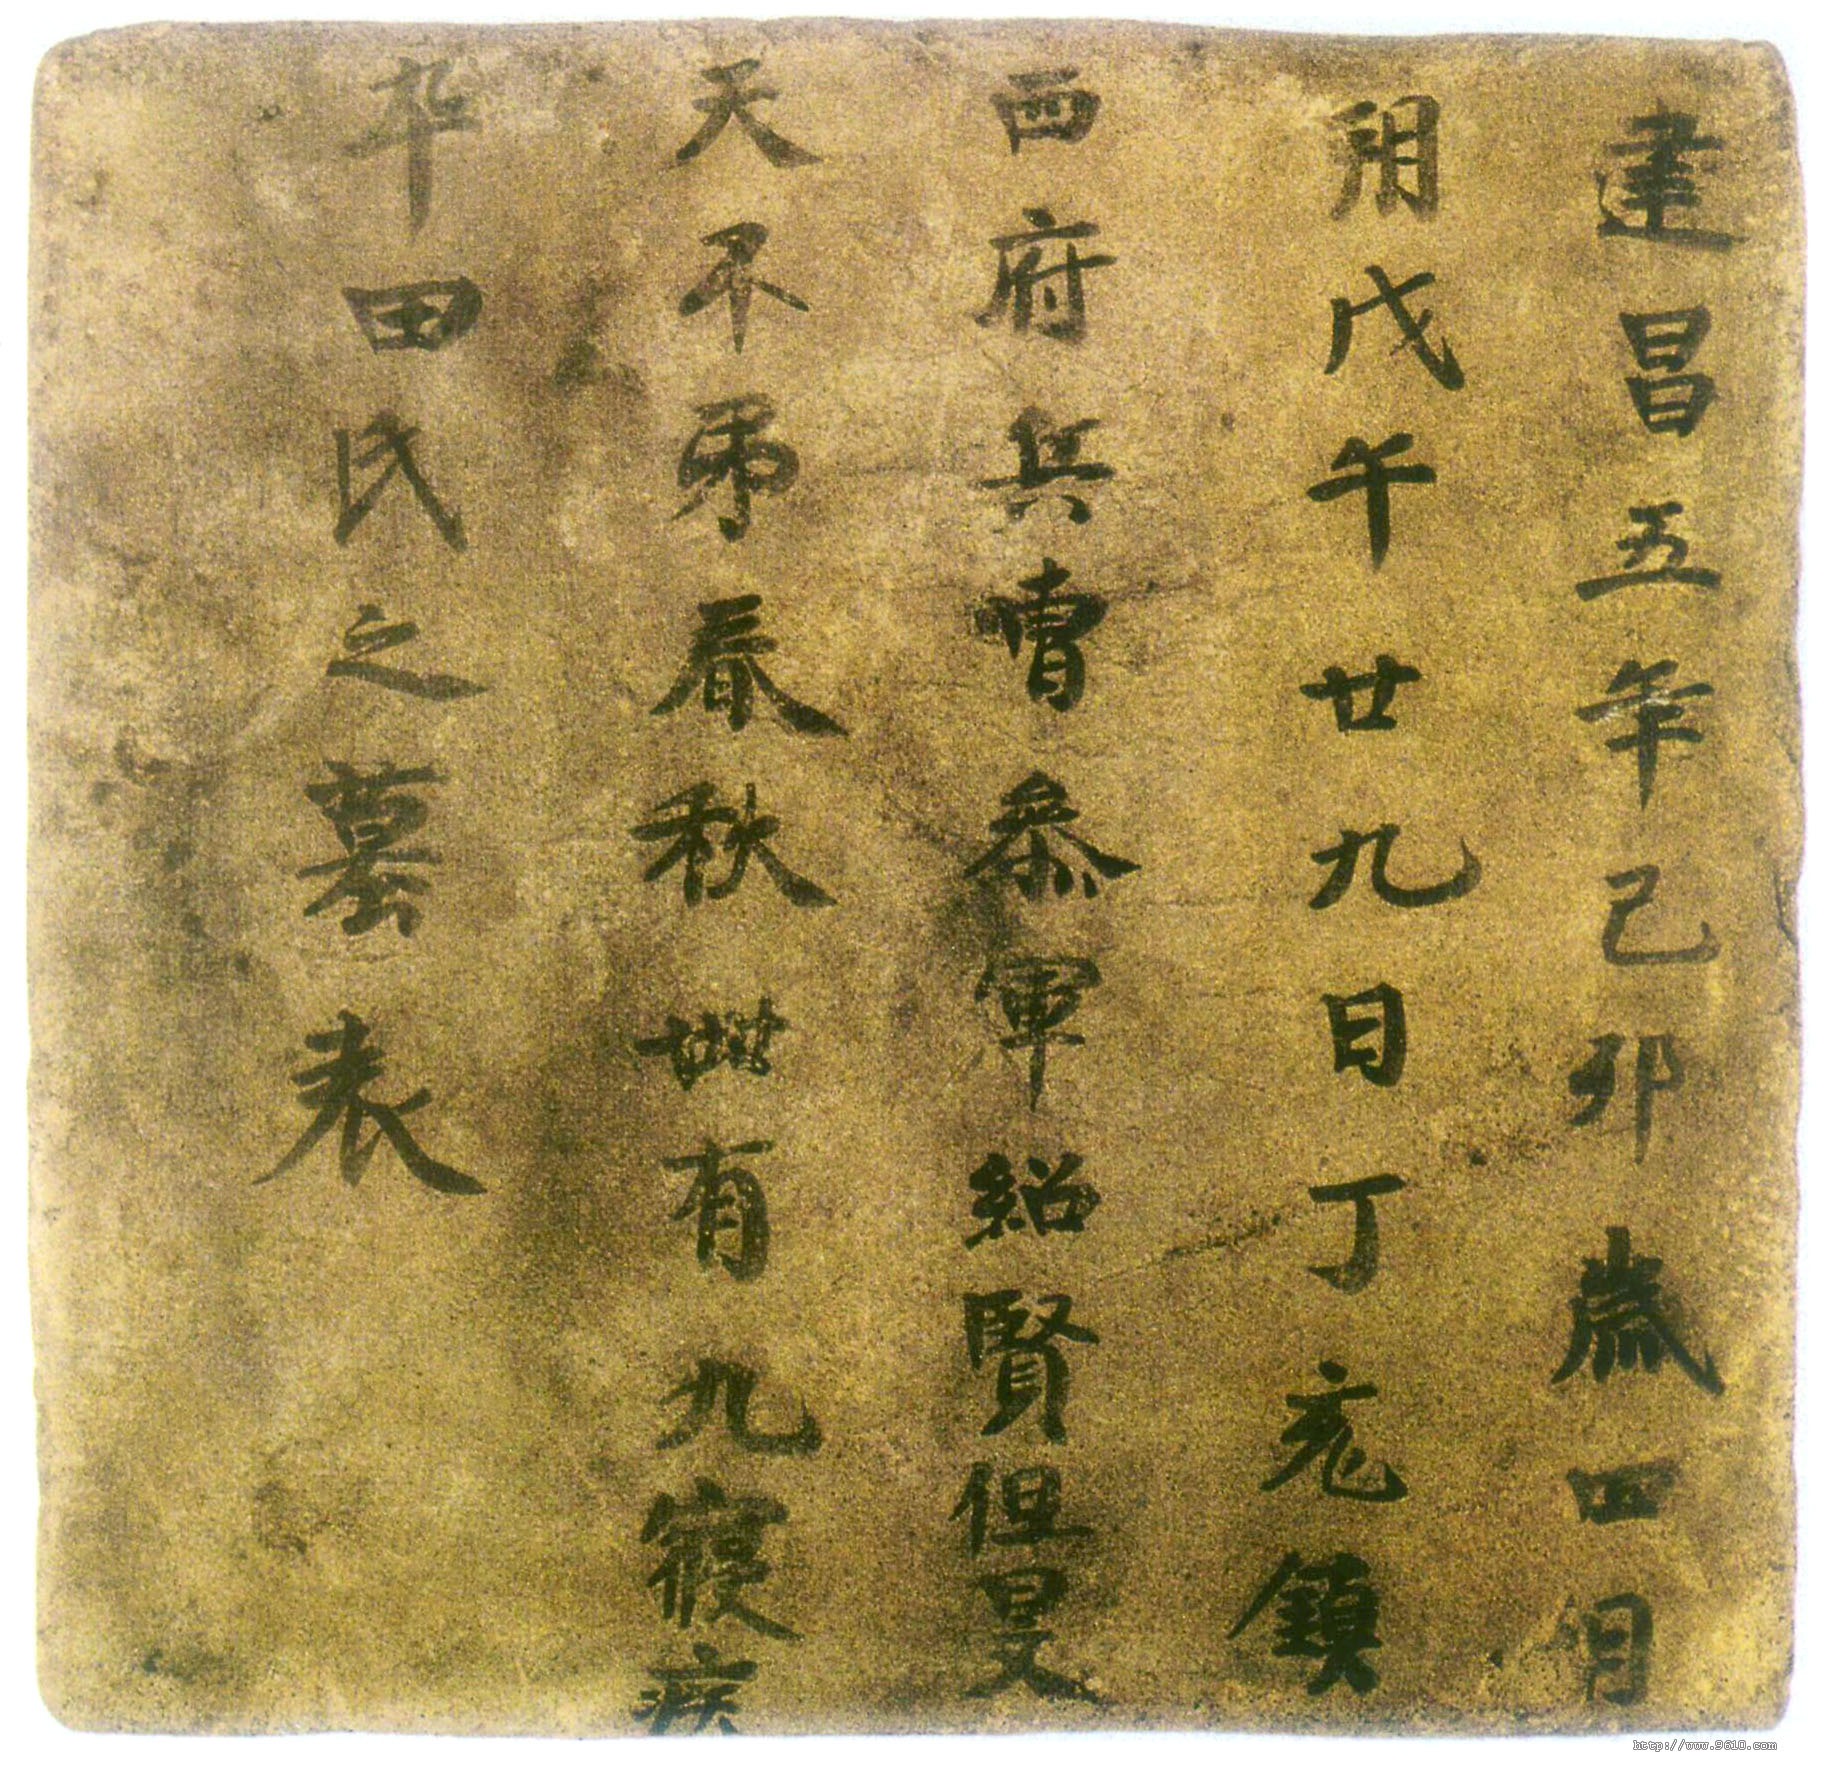 建昌五年己卯歲四月
朔戊午廿九日丁亥鎮
西府兵曹參軍紹賢但旻
天不弔春秋卌有九寢疾
卒田氏之墓表
http://www.9610.com